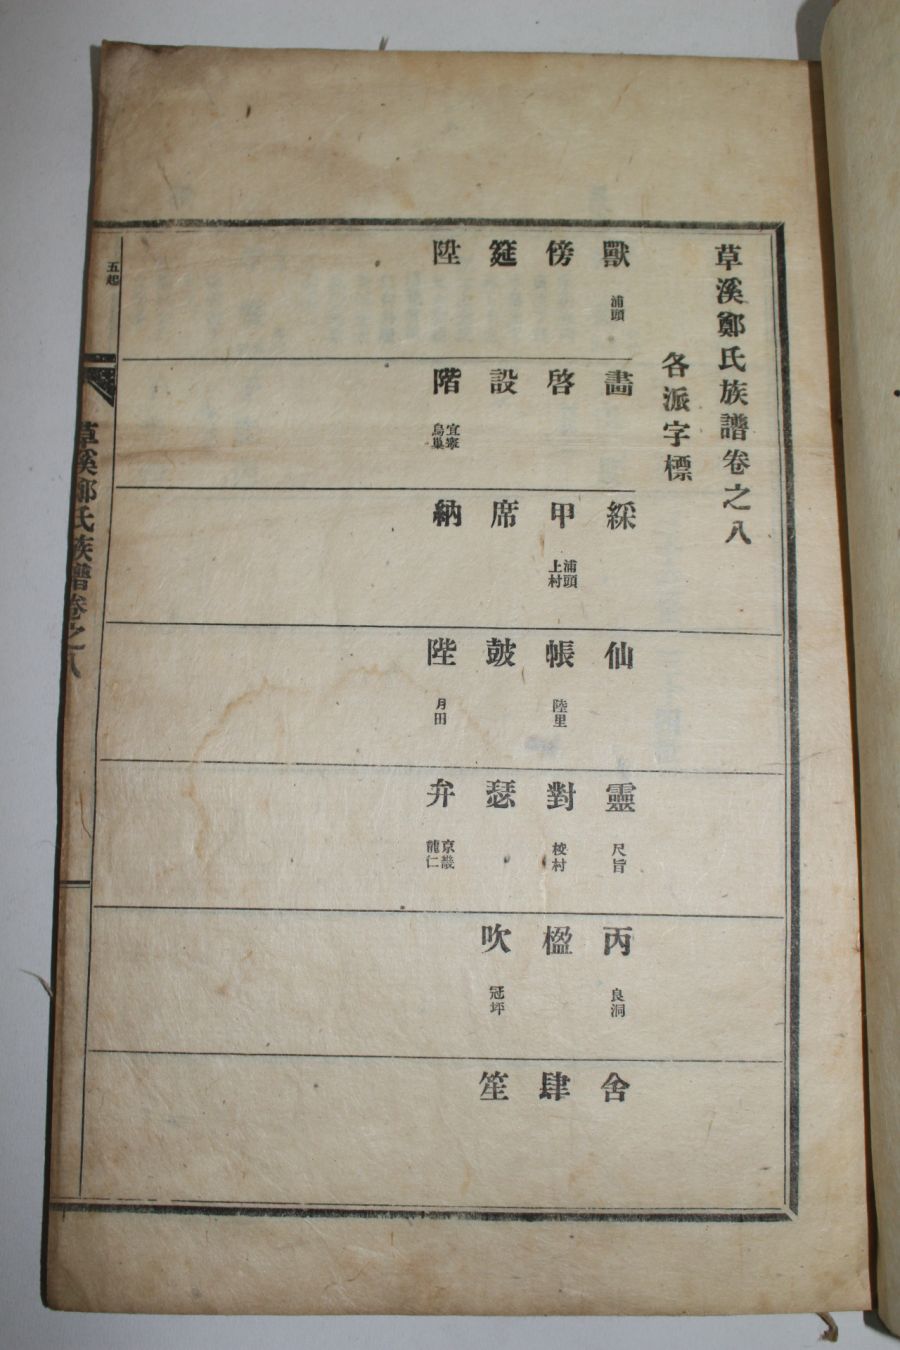 草溪鄭氏族譜卷之八
各派字標
獸 浦頭
畵
綵
仙
靈 尺旨
丙 良洞
舍
傍
啓
甲 浦頭 上村
帳 陸里
對 梭村
楹
肆
筵
設
席
皷
瑟
吹 冠坪
笙
陞
階 宜寧 烏巢
納
陛 月田
弁 京畿 龍仁
五起
草溪鄭氏族譜卷之八